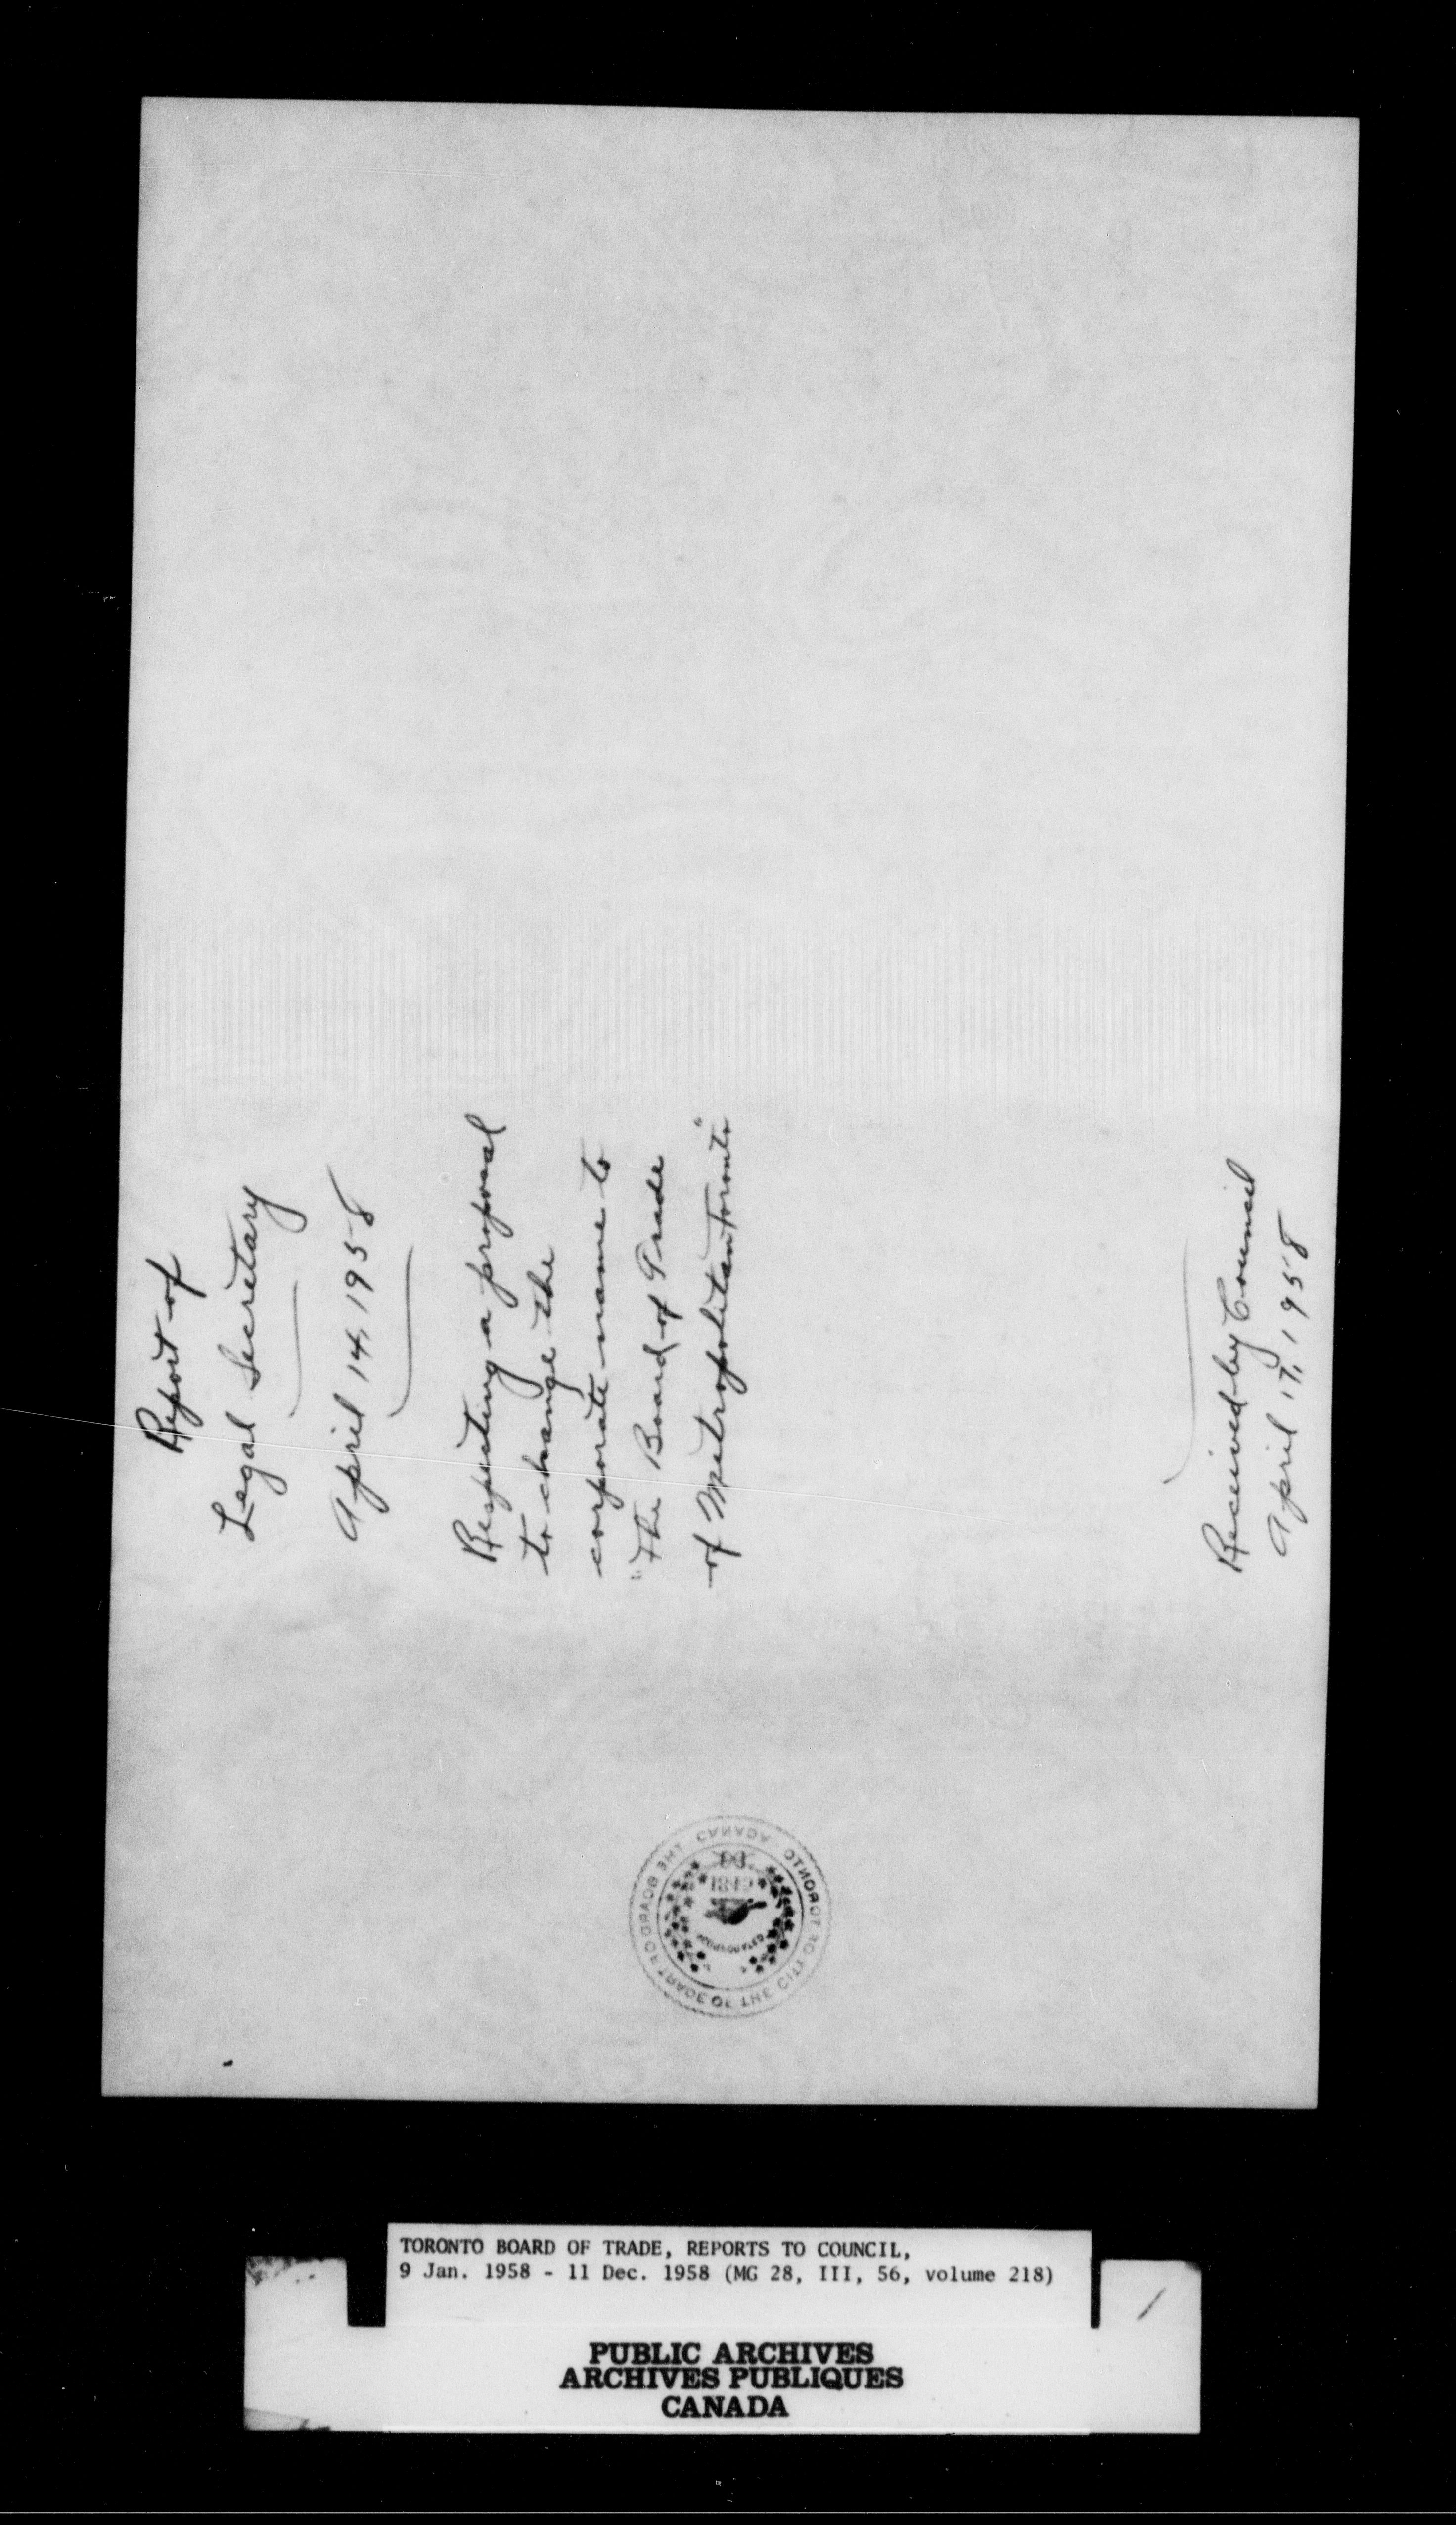 Report of
Legal Secretary
April 14, 1958
Respecting a proposal
to change the
corporate name to
"The Board of Trade
of Metropolitan Toronto"
Received by Council
April 17, 1958
THE BOARD OF TRADE OF THE CITY OF TORONTO CANADA
INCORPORATED
TORONTO BOARD OF TRADE, REPORTS TO COUNCIL,
9 Jan. 1958 - 11 Dec. 1958 (MG 28, III, 56, volume 218)
PUBLIC ARCHIVES
ARCHIVES PUBLIQUES
CANADA